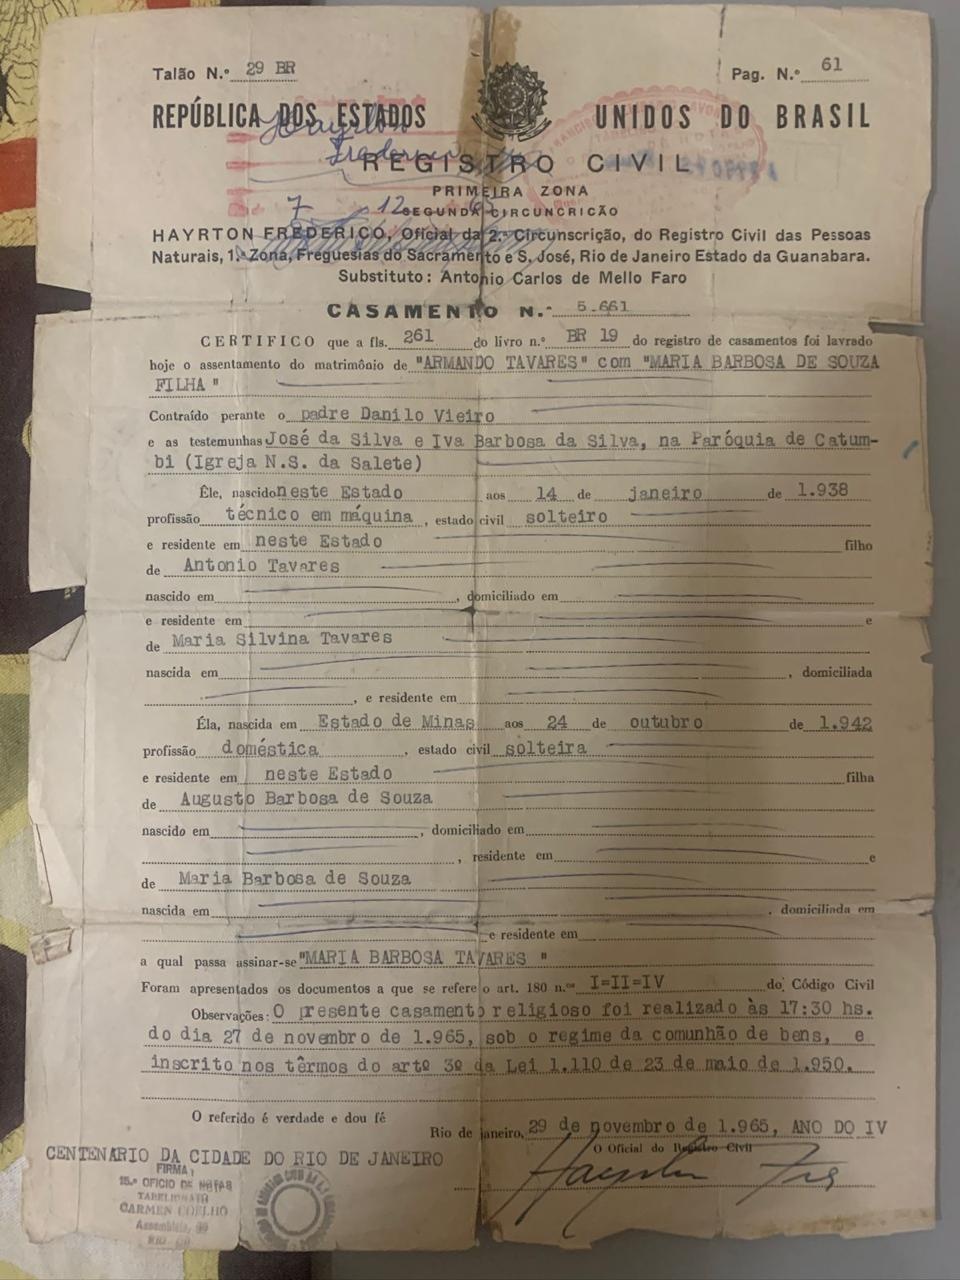 Talão N.º 29 BR Pag. N.º 61
REPÚBLICA DOS ESTADOS UNIDOS DO BRASIL
Hayrton
Frederico
REGISTRO CIVIL
PRIMEIRA ZONA
7 12 65
SEGUNDA CIRCUNCRIÇÃO
HAYRTON FREDERICO, Oficial da 2.ª Circunscrição, do Registro Civil das Pessoas
Naturais, 1.ª Zona, Freguesias do Sacramento e S. José, Rio de Janeiro Estado da Guanabara.
Substituto: Antonio Carlos de Mello Faro
CASAMENTO N.º 5.661
CERTIFICO que a fls. 261 do livro n.º BR 19 do registro de casamentos foi lavrado
hoje o assentamento do matrimônio de "ARMANDO TAVARES" com "MARIA BARBOSA DE SOUZA
FILHA "
Contraído perante o padre Danilo Vieiro
e as testemunhas José da Silva e Iva Barbosa da Silva, na Paróquia de Catum-
bi (Igreja N.S. da Salete)
Êle, nascido neste Estado aos 14 de janeiro de 1.938
profissão técnico em máquina , estado civil solteiro
e residente em neste Estado filho
de Antonio Tavares
nascido em , domiciliado em
e residente em e
de Maria Silvina Tavares
nascida em , domiciliada
, e residente em
Éla, nascida em Estado de Minas aos 24 de outubro de 1.942
profissão doméstica , estado civil solteira
e residente em neste Estado filha
de Augusto Barbosa de Souza
nascido em , domiciliado em
, residente em e
de Maria Barbosa de Souza
nascida em , domiciliada em
e residente em
a qual passa assinar-se "MARIA BARBOSA TAVARES "
Foram apresentados os documentos a que se refere o art. 180 n.ºs I=II=IV do Código Civil
Observações: O presente casamento religioso foi realizado às 17:30 hs.
do dia 27 de novembro de 1.965, sob o regime da comunhão de bens, e
inscrito nos têrmos do artº 3º da Lei 1.110 de 23 de maio de 1.950.
O referido é verdade e dou fé
Rio de janeiro, 29 de novembro de 1.965, ANO DO IV
O Oficial do Registro Civil
CENTENARIO DA CIDADE DO RIO DE JANEIRO
FIRMA:
15.º OFICIO DE NOTAS
TABELIONATO
CARMEN COELHO
Assembleia, 99